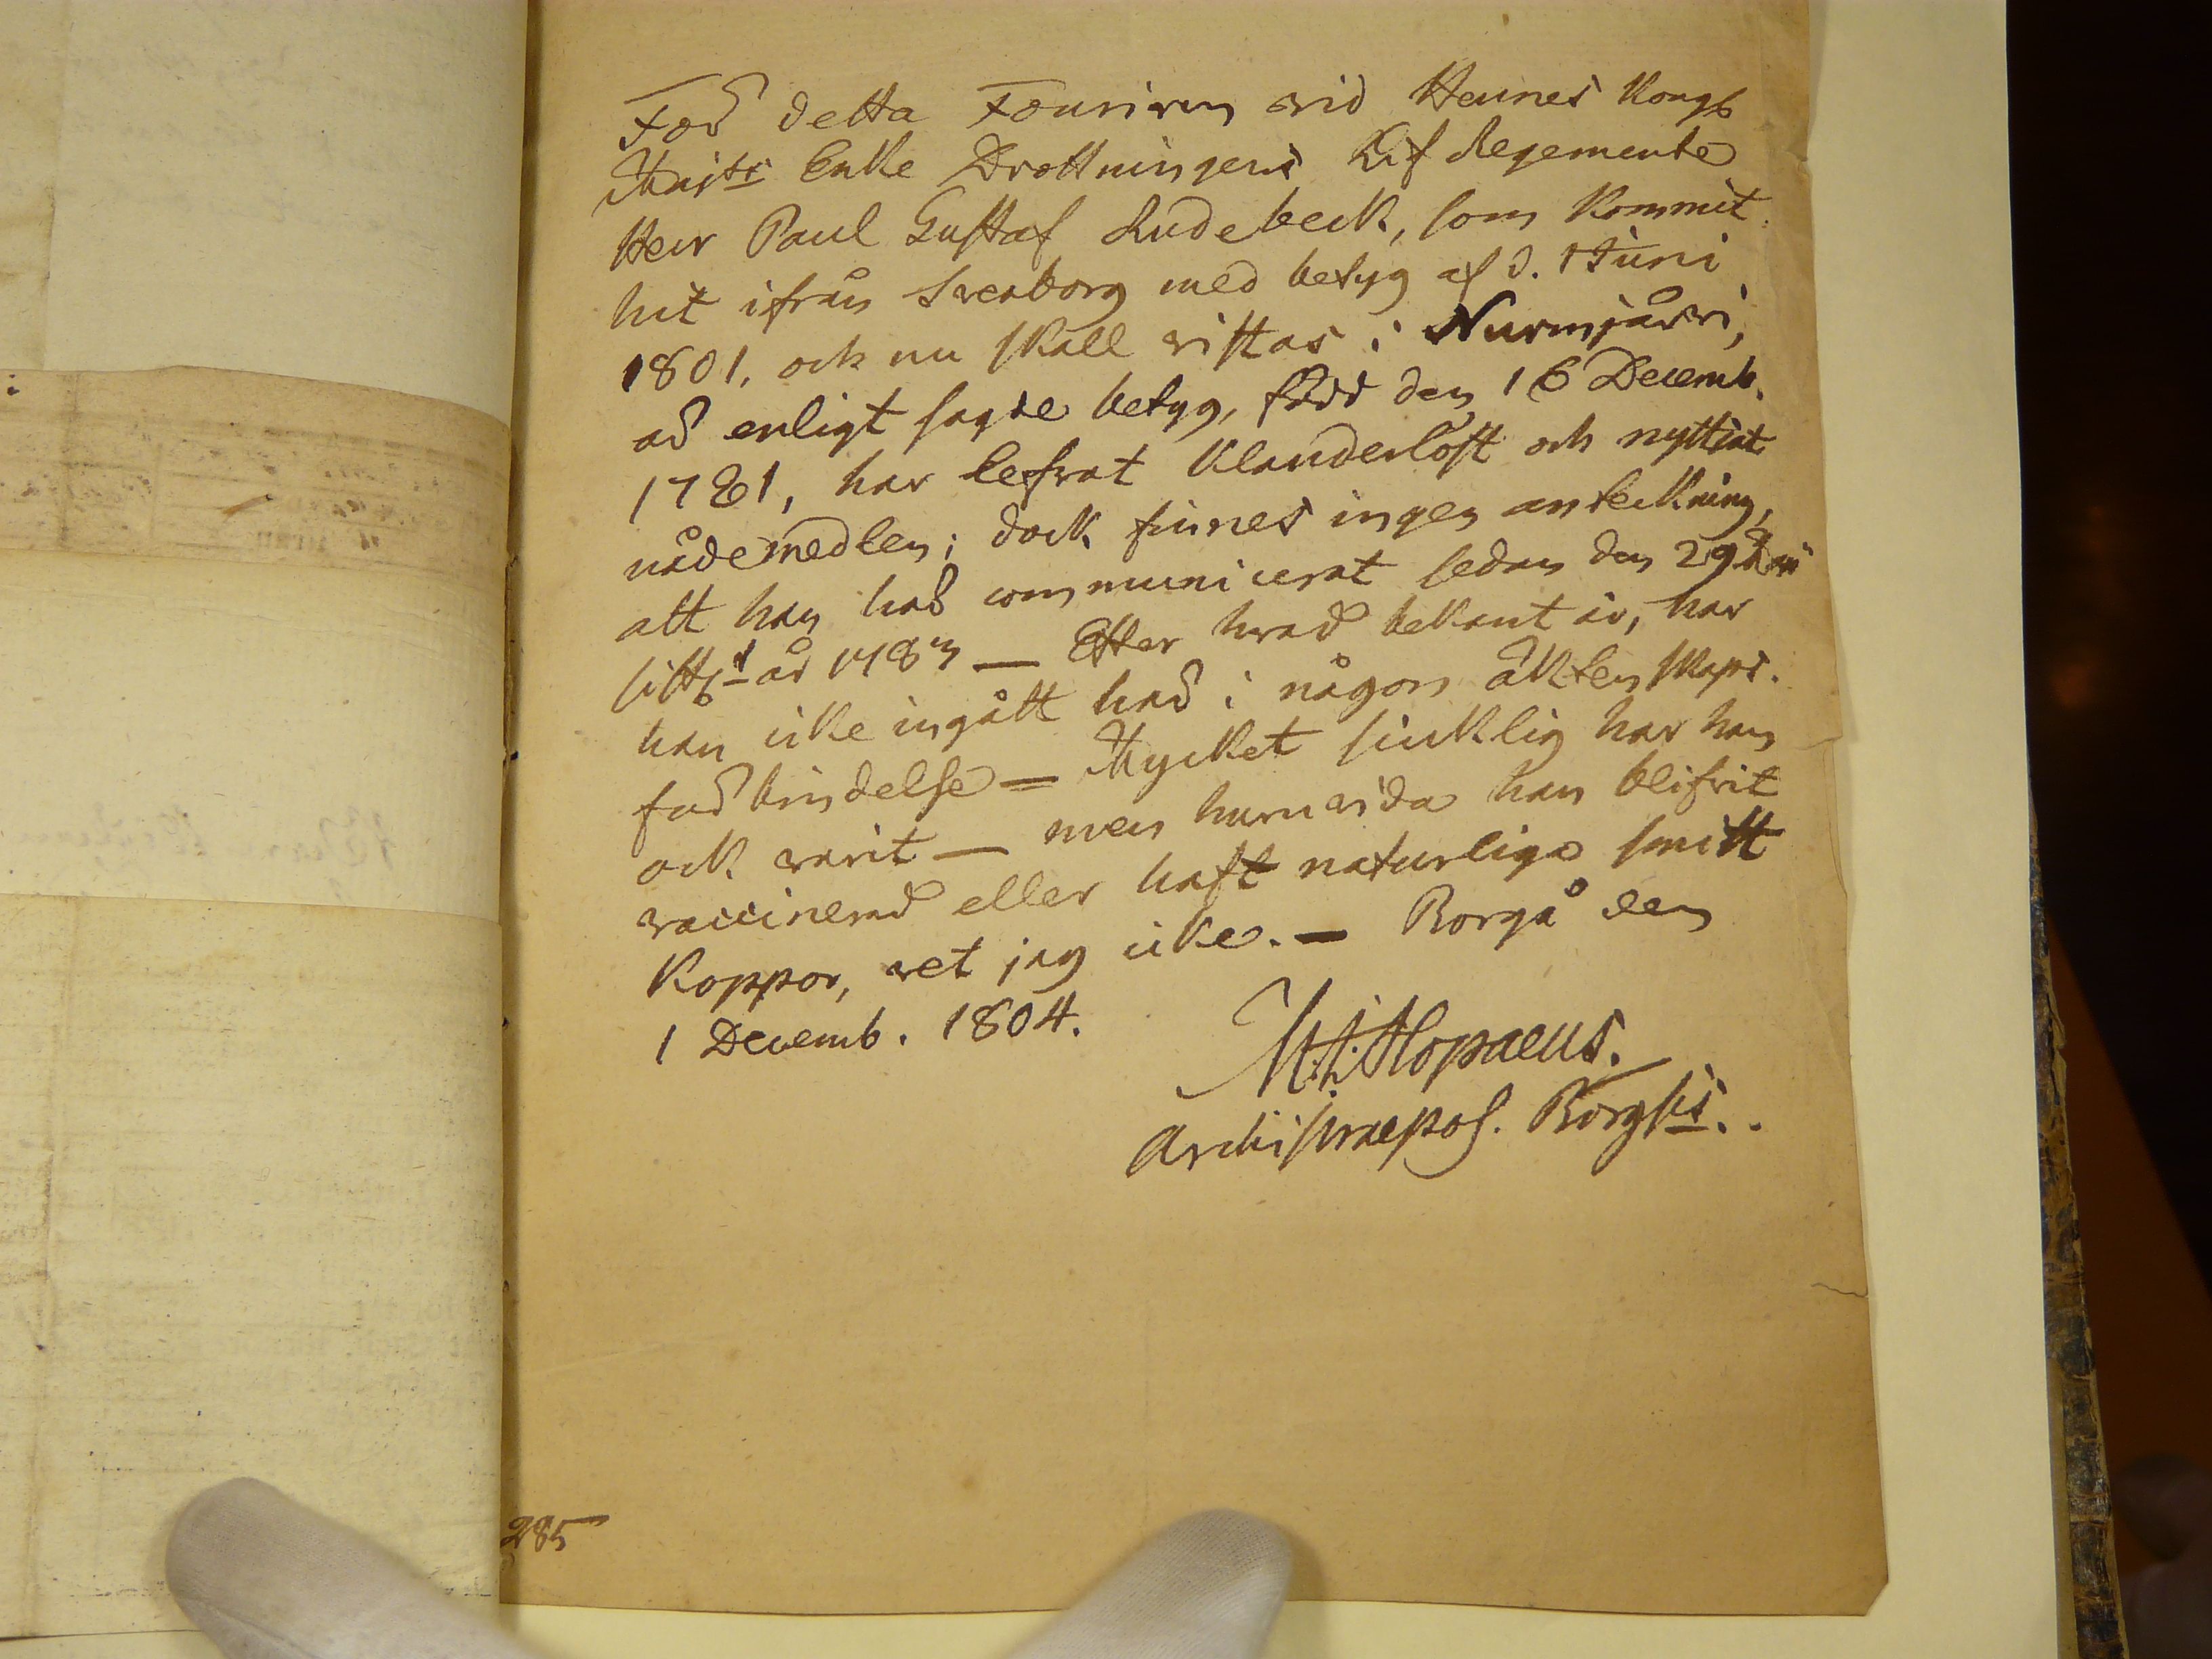 För detta Fouriren wid Hennes Kongl
Maj:ts Enke Drottningens Lif Regemente
Herr Paul Gustaf Rudebeck, som kommit
hit ifrån Sveaborg med betyg af d. 1 Juni
1801, och nu skall vistas i Nurmjärvi,
är enligt sagde betyg, född den 16 Decemb.
1781, har lefvat klanderlöst och nyttiat
nådemedlen; dock finnes ingen anteckning,
att han har communicerat sedan den 29
sistl. år — Efter hvad bekant är, har
han icke ingått här i någon äktenskaps-
förbindelse = Mycket siuklig har han
ock varit — men huruvida han blifvit
vaccinerad eller haft naturliga smitt
koppor, vet jag icke. — Borgå den
1 Decemb. 1804.
M. Alopaeus.
Archipraepos. Borgs:is.
285